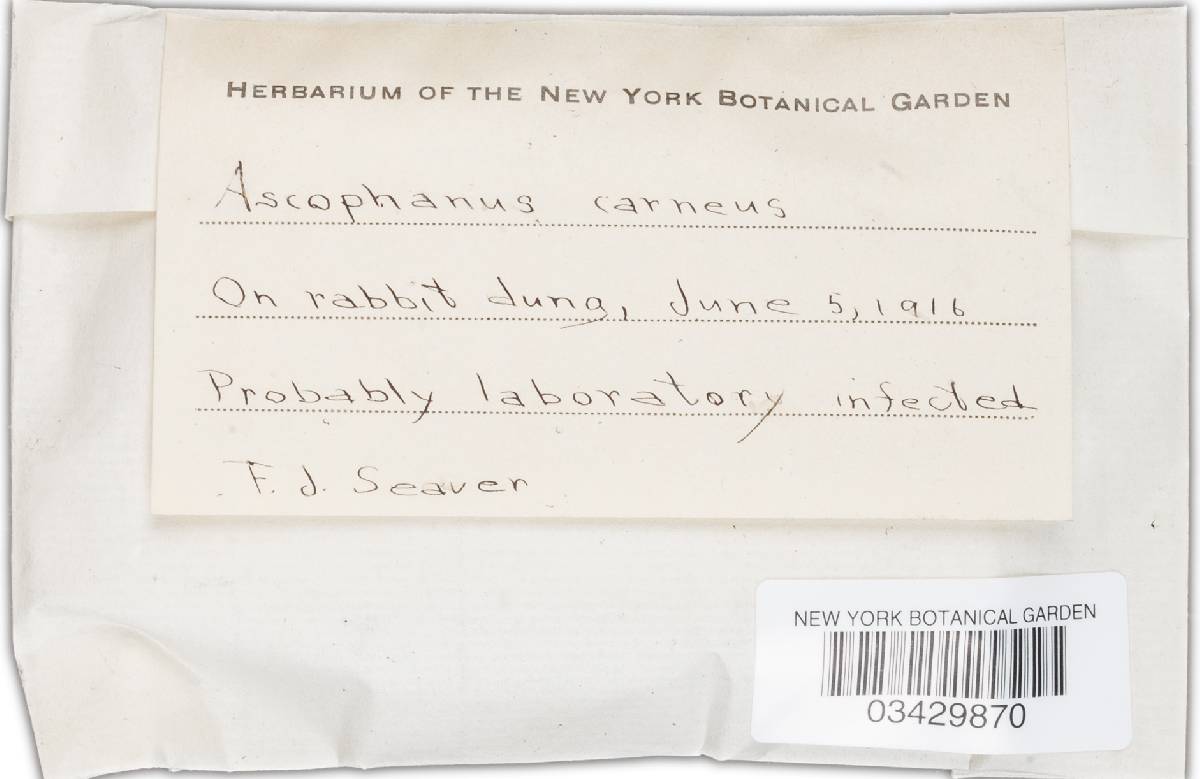 HERBARIUM OF THE NEW YORK BOTANICAL GARDEN
Ascophanus carneus
On rabbit dung, June 5, 1916
Probably laboratory infected
F. J. Seaver
NEW YORK BOTANICAL GARDEN
03429870